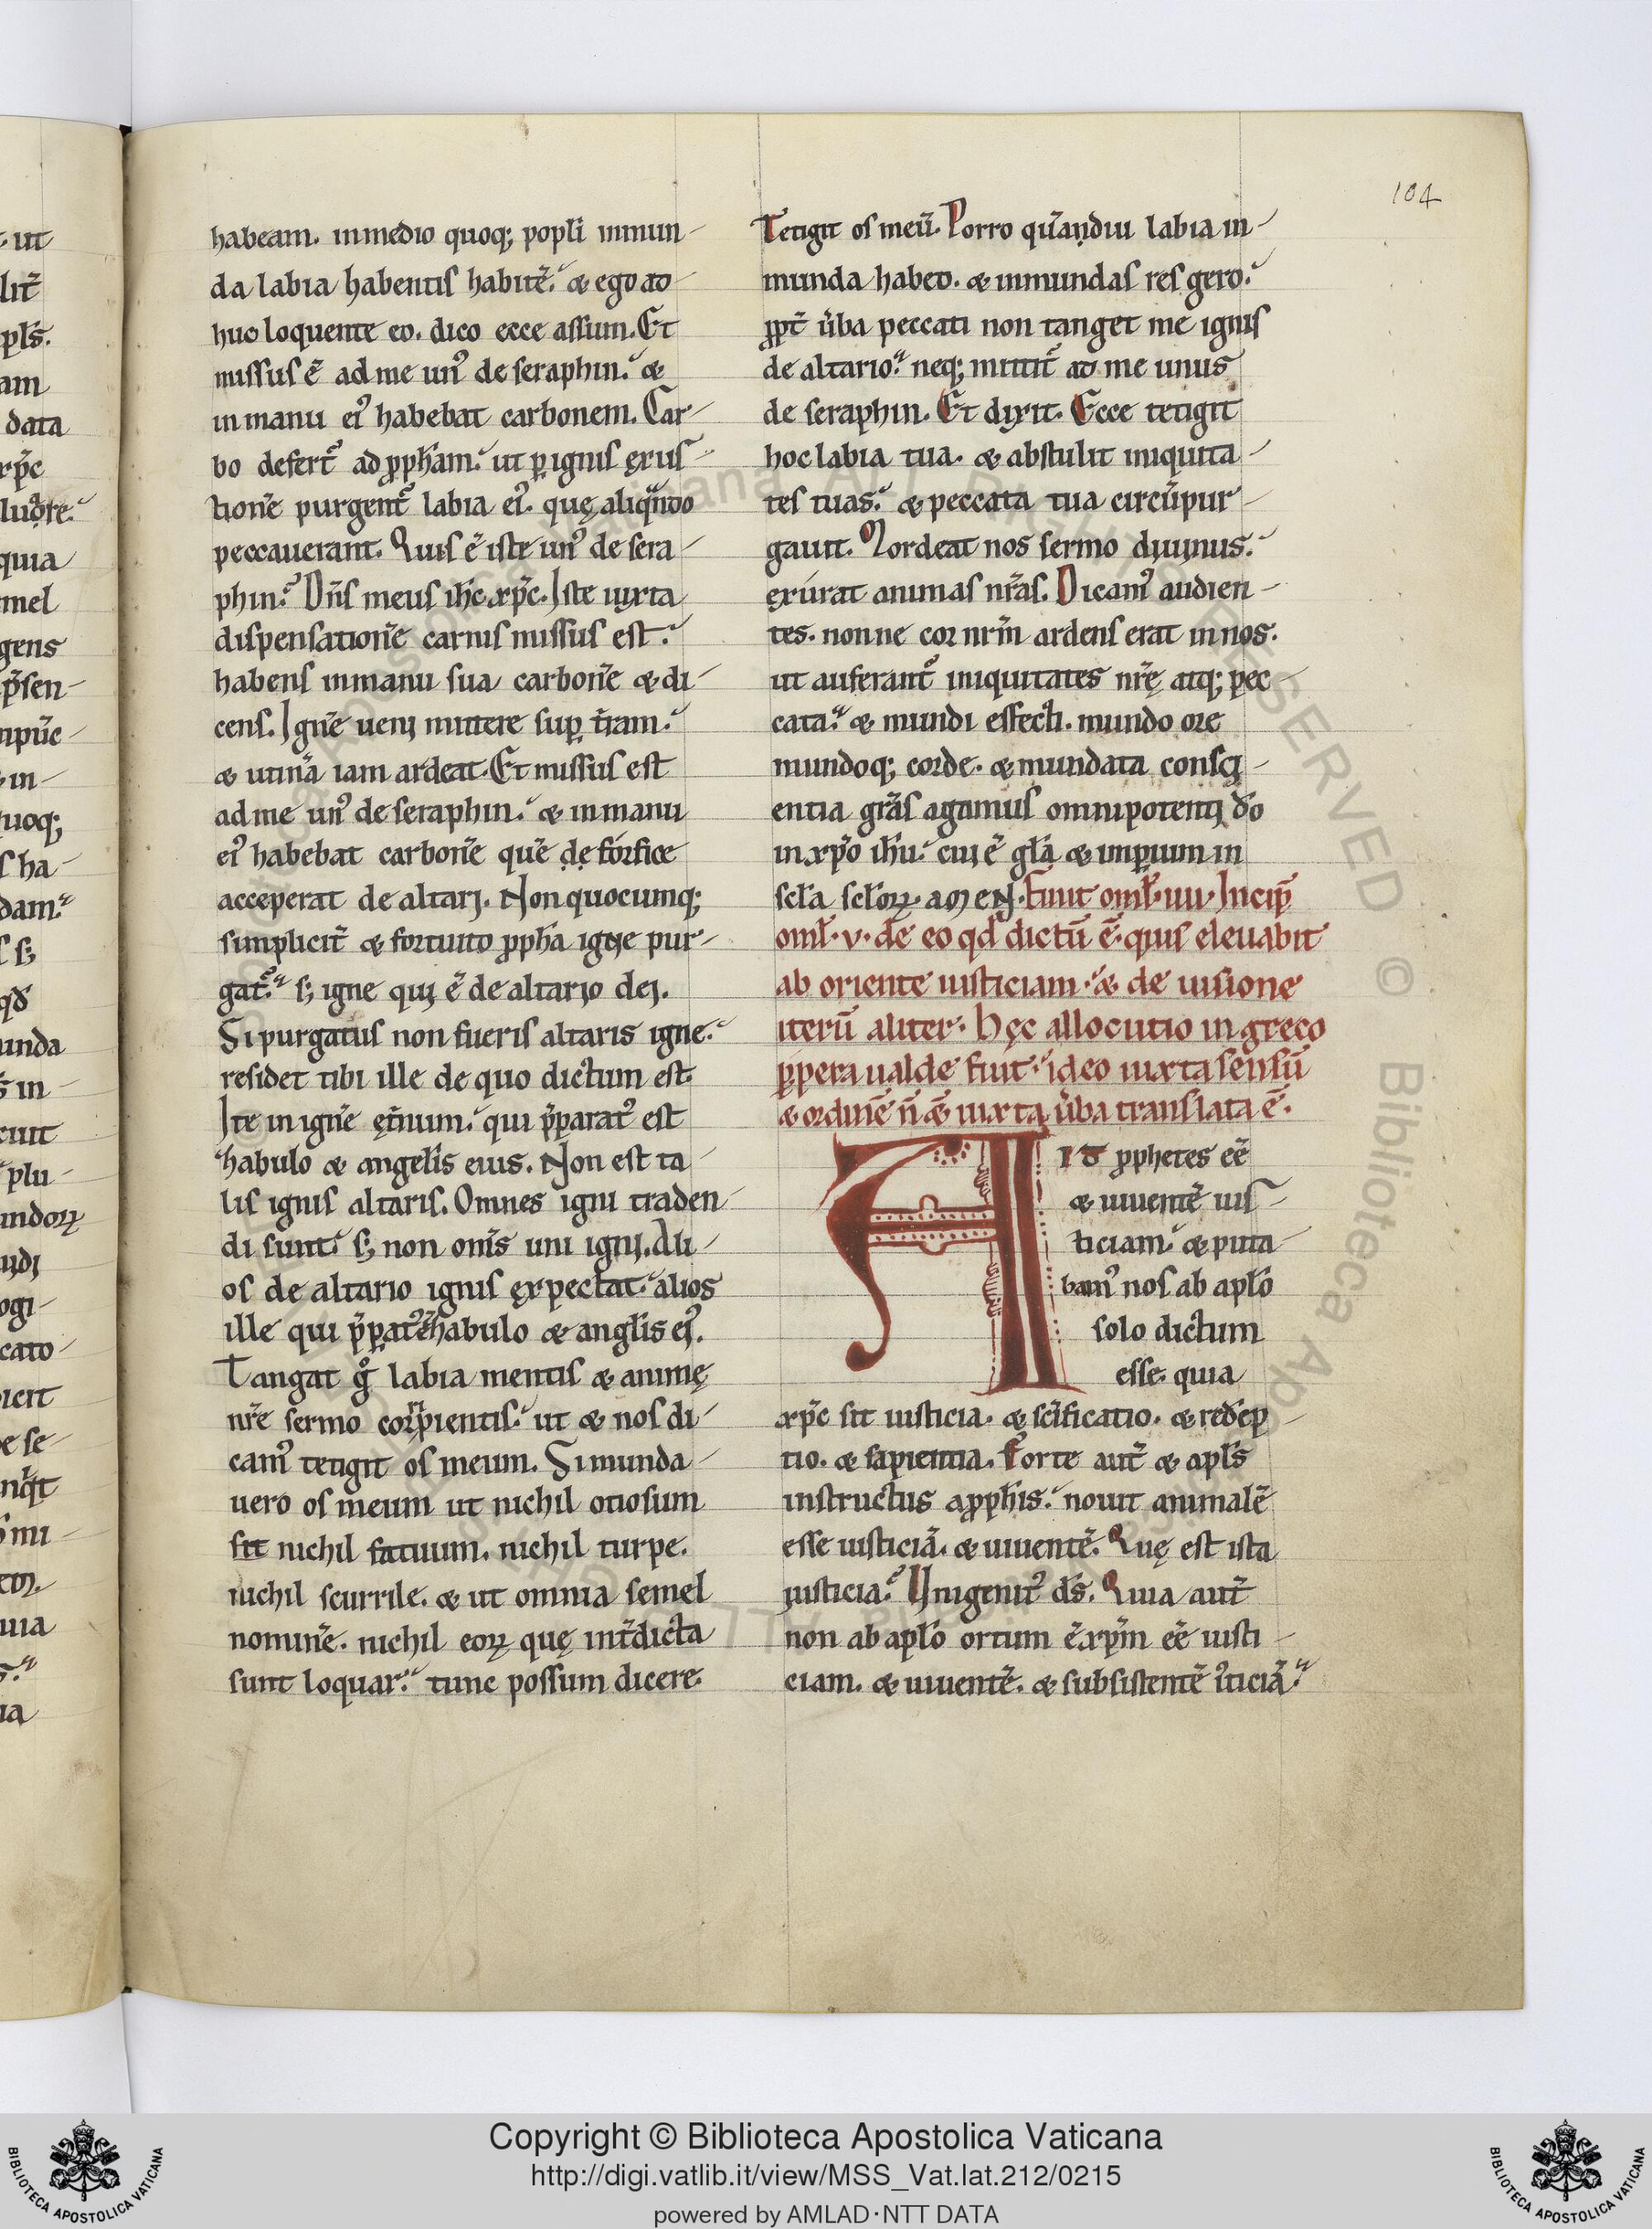 104
habeam. inmedio quoq; popli inmun-
da labia habentis habitē. & ego ad
huc loquente eo. dico ecce assum. Et
missus ē ad me un᾽ de seraphin. &
in manu ei᾽ habebat carbonem. Car-
bo defert᾽ ad ꝓph̄am. ut ꝑ ignis ęxus-
tionē purgent᾽ labia ei᾽. quę aliqn̄do
peccauerant. Quis ē iste un᾽ de sera-
phin? Dn̄s meus ih̄c xp̄c. Iste iuxta
dispensationē carnis missus est.
habens inmanu sua carbonē & di-
cens. Ignē ueni mittere suꝑ t̄ram.
& utinā iam ardeat. Et missus est
ad me un᾽ de seraphin. & inmanu
ei᾽ habebat carbonē quē de forfice
acceperat de altari. Non quocumq;
simplicit̄ & fortuito ꝓph̄a igne pur-
gat᾽. s; igne qui ē de altario dei.
Si purgatus non fueris altaris igne.
residet tibi ille de quo dictum est.
Ite in ignē ęt̄num. qui p̄parat᾽ est
zhabulo & angelis eius. Non est ta-
lis ignis altaris. Omnes igni traden-
di sunt. s; non om̄s uni igni. Ali-
os de altario ignis ęxpectat. alios
ille qui p̄parat᾽ ē zhabulo & angl̄is ei᾽.
Tangat g᾽ labia mentis & animę
nr̄e sermo corripientis. ut & nos di-
cam᾽ tetigit os meum. Si munda-
uero os meum ut nichil otiosum
sit nichil fatuum. nichil turpe.
nichil scurrile. & ut omnia semel
nominē. nichil eoꝝ quę int̄dicta
sunt loquar. tunc possum dicere.
Tetigit os meū. Porro quandiu labia in-
munda habeo. & inmundas res gero.
ꝓpt̄ ūba peccati non tanget me ignis
de altario. neq; mittit᾽ ad me unus
de seraphin. Et dixit. Ecce tetigit
hoc labia tua. & abstulit iniquita-
tes tuas. & peccata tua circūpur-
gauit. Mordeat nos sermo diuinus.
ęxurat animas nr̄as. Dicam᾽ audien-
tes. nonne cor nr̄m ardens erat in nos.
ut auferant᾽ iniquitates nr̄ę atq; pec-
cata. & mundi effecti. mundo ore
mundoq; corde. & mundata consci-
entia grās agamus omnipotenti dō
in xp̄o ih̄u. cui ē gl̄a & imꝑium in
sc̄la sc̄loꝝ. amen. Finit oml̄. iiii. Incip̄
oml̄. v. de eo qd̄ dictū ē. quis eleuabit
ab oriente iusticiam. & de uisione
iterū aliter. Hęc allocutio in greco
ꝓpera ualde fuit. ideo iuxta sensū
& ordinē n̄ &̄ iuxta ūba translata ē.
AIt ꝓphetes eē
& uiuentē ius-
ticiam. & puta-
bam᾽ nos ab apl̄o
solo dictum
esse. quia
xp̄c sit iusticia. & sc̄ificatio. & redēp-
tio. & sapientia. Forte aut̄ & apl̄s
instructus a ꝓph̄is. nouit animalē
esse iusticiā. & uiuentē. Quę est ista
iusticia? Unigenit᾽ dī. Quia aut̄
non ab apl̄o ortum ē xp̄m eē iusti-
ciam. & uiuentē. & subsistentē iusticiā.
Copyright © Biblioteca Apostolica Vaticana
http://digi.vatlib.it/view/MSS_Vat.lat.212/0215
powered by AMLAD·NTT DATA